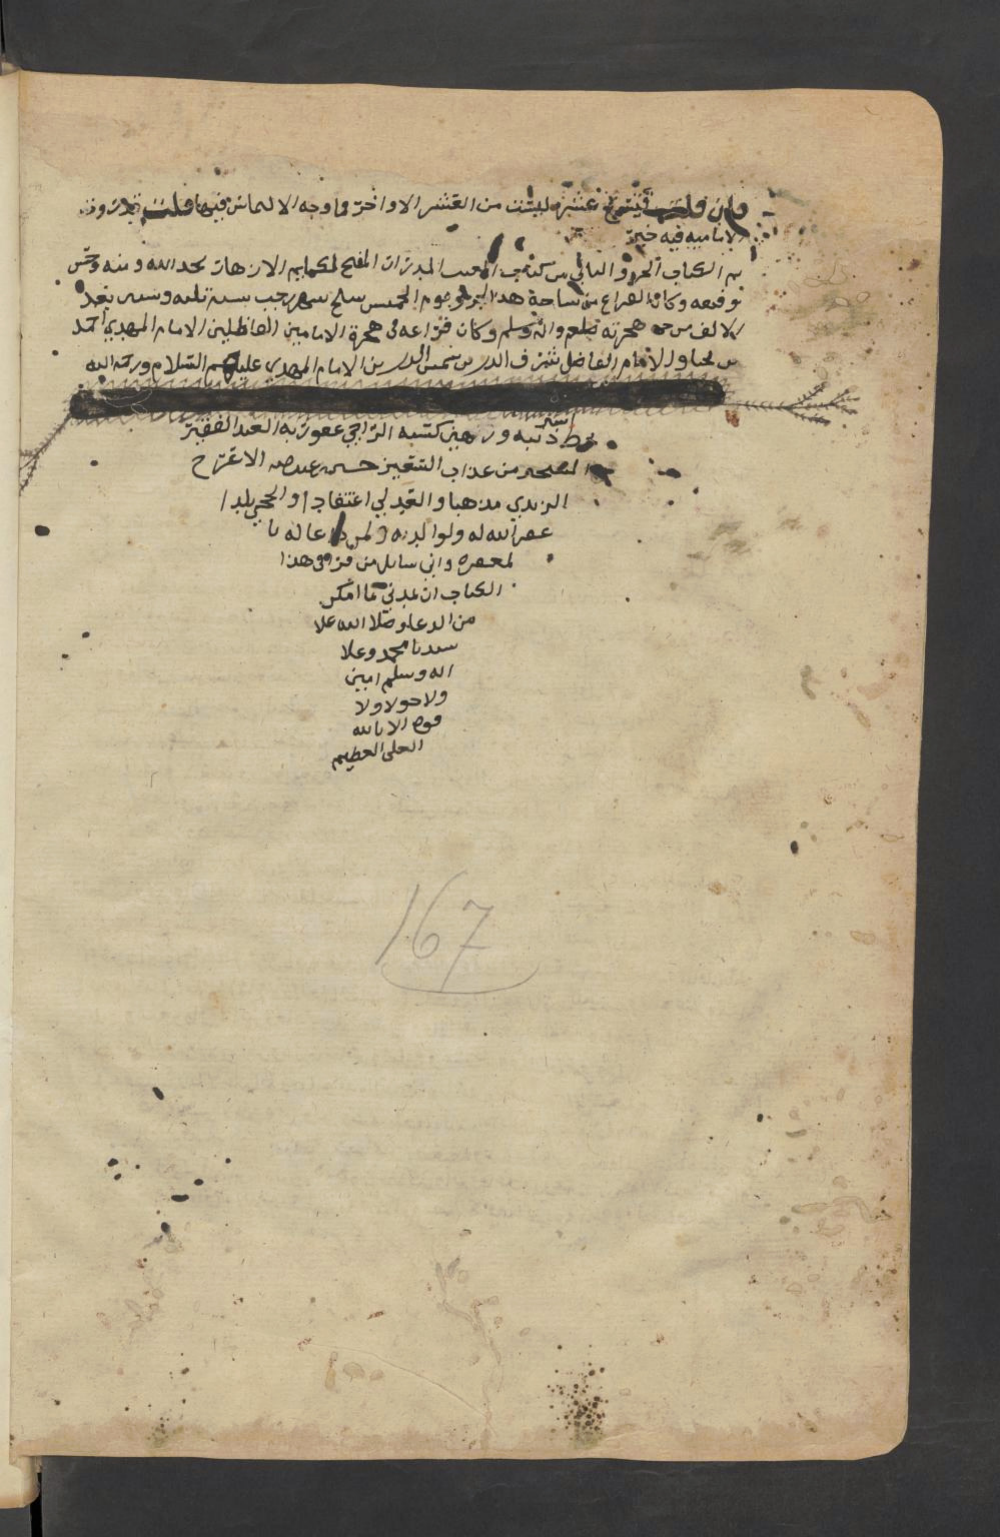 وان قلت عشر لبثت من العشر الاواخر فما وجه الالتماس فيها قلت
الامامية فيه خير
تم الكتاب الجزو الثاني من كتاب الغيث المدرار المفتح لكمايم الازهار بحمد الله ومنه وحسن
توفيقه وكان الفراغ من نساخة هذا الجزو يوم الخميس سلخ شهر رجب سنة ثلثه وستين بعد
الالف من هجرته صلعم واله وسلم وكان فراعه في هجرة الامامين الفاظلين الامام المهدي احمد
بن يحيا والامام الفاضل شرف الدين بن شمس الدين بن الامام المهدي عليهم السلام ورحمة الله
بخط اسير ذنبه ورهين كسبه الراجي عفو ربه العبد الفقير
المستجير من عذاب السعير حسن
الزيدي مذهبا والعدلي اعتقادا و بلدا
غفر الله له ولوالديه ولمن دعا له با
لمغفره واني سايل من قرا في هذا
الكتاب ان يمدني بما امكن
من الدعا وصلا الله علا
سيدنا محمد وعلا
اله وسلم امين
ولا حولا ولا
قوه الا بالله
العلي العظيم
167